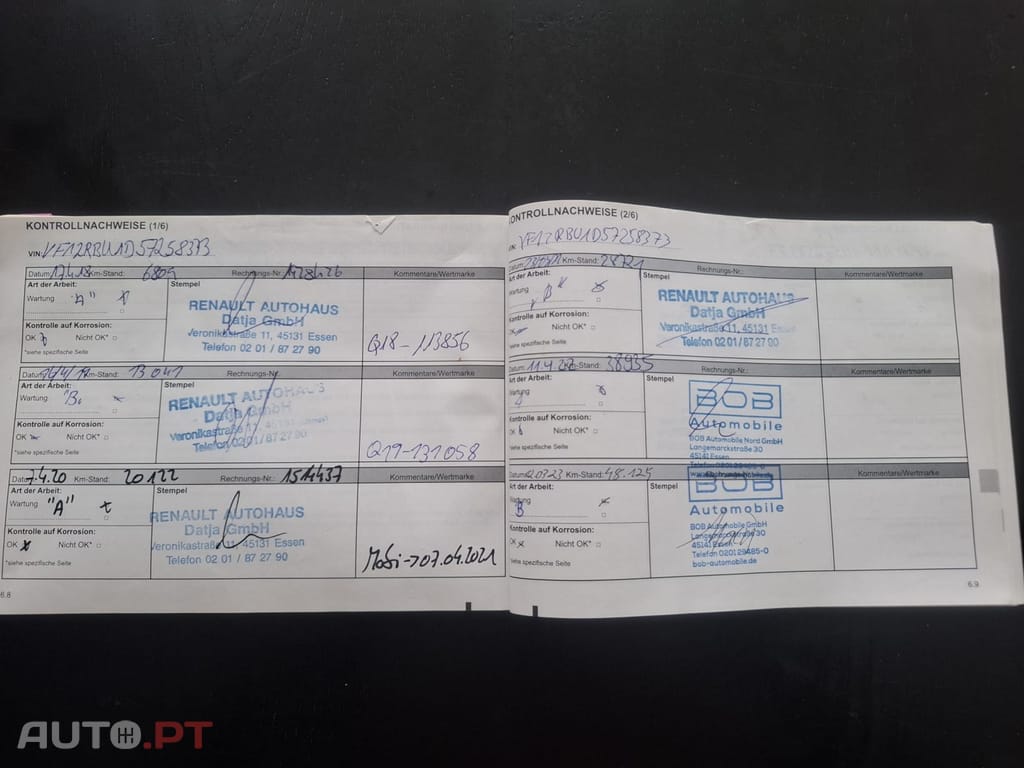 KONTROLLNACHWEISE (1/6)
VIN: VF12RBU1D57258373
Datum: 17.4.18 Km-Stand: 6805 Rechnungs-Nr.: 1428426 Kommentare/Wertmarke
Art der Arbeit: Stempel
Wartung "A"
RENAULT AUTOHAUS
Datja GmbH
Veronikastraße 11, 45131 Essen
Telefon 02 01 / 87 27 90
Kontrolle auf Korrosion:
OK Nicht OK*
*siehe spezifische Seite
Q18-113856
Datum: Km-Stand: 13041 Rechnungs-Nr.: Kommentare/Wertmarke
Art der Arbeit: Stempel
Wartung "B"
RENAULT AUTOHAUS
Datja GmbH
Veronikastraße 11, 45131 Essen
Telefon 02 01 / 87 27 90
Kontrolle auf Korrosion:
OK Nicht OK*
*siehe spezifische Seite
Q19-131058
Datum: 7.4.20 Km-Stand: 20122 Rechnungs-Nr.: 1514437 Kommentare/Wertmarke
Art der Arbeit: Stempel
Wartung "A"
RENAULT AUTOHAUS
Datja GmbH
Veronikastraße 11, 45131 Essen
Telefon 02 01 / 87 27 90
Kontrolle auf Korrosion:
OK Nicht OK*
*siehe spezifische Seite
Mobi->07.04.2021
6.8
KONTROLLNACHWEISE (2/6)
VF12RBU1D57258373
Datum: Km-Stand: Rechnungs-Nr.: Kommentare/Wertmarke
Art der Arbeit: Stempel
Wartung "B"
RENAULT AUTOHAUS
Datja GmbH
Veronikastraße 11, 45131 Essen
Telefon 02 01 / 87 27 90
Kontrolle auf Korrosion:
OK Nicht OK*
*siehe spezifische Seite
Datum: 11.4.22 Km-Stand: 38935 Rechnungs-Nr.: Kommentare/Wertmarke
Art der Arbeit: Stempel
Wartung
BOB
Automobile
BOB Automobile Nord GmbH
Langemarckstraße 30
45141 Essen
Kontrolle auf Korrosion:
OK Nicht OK*
*siehe spezifische Seite
Datum: Km-Stand: 48.125 Rechnungs-Nr.: Kommentare/Wertmarke
Art der Arbeit: Stempel
Wartung B
BOB
Automobile
BOB Automobile GmbH
Langemarckstraße 30
45141 Essen
Telefon 0201 29485-0
bob-automobile.de
Kontrolle auf Korrosion:
OK Nicht OK*
*siehe spezifische Seite
6.9
AUTO.PT